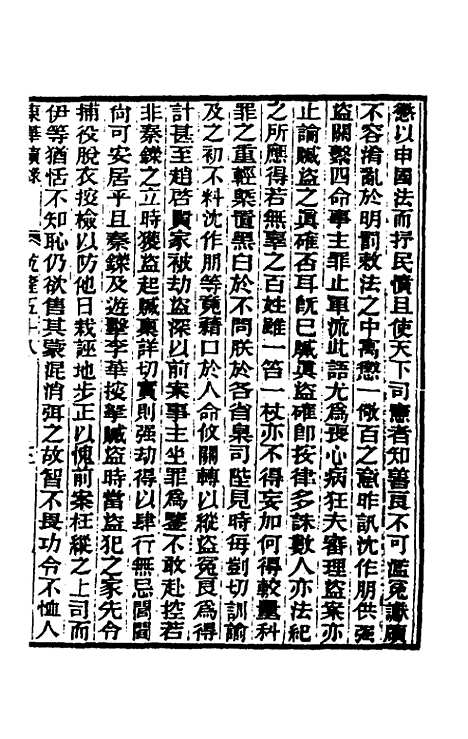 懲以申國法而抒民憤且使天下司憲者知善良不可濫冤讞牘
不容淆亂於明罰敕法之中寓懲一儆百之意昨訊沈作朋供强
盜關繫四命事主罪止軍流此語尤爲喪心病狂夫審理盜案亦
止論贓盜之眞確否耳旣已贓眞盜確卽按律多誅數人亦法紀
之所應得若無辜之百姓雖一笞一杖亦不得妄加何得較量科
罪之重輕槩置黑白於不問朕於各省臬司陛見時每剴切訓諭
及之初不料沈作朋等竟藉口於人命攸關轉以縱盜冤良爲得
計甚至趙啓賢家被劫盜深以前案事主坐罪爲鑒不敢赴控若
非秦鑅之立時獲盜起贓稟詳切實則强劫得以肆行無忌閭閻
尙可安居乎且秦鑅及遊擊李華授拏贓盜時當盜犯之家先令
捕役脫衣按檢以防他日栽誣地步正以愧前案枉縱之上司而
伊等猶恬不知恥仍欲售其蒙混消弭之故智不畏功令不恤人
東華續錄　乾隆五十八